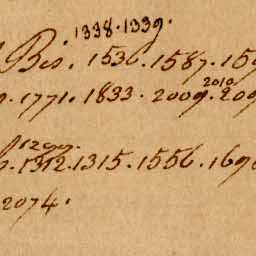 1338. 1339.
Bis. 1536. 1587. 159
2010
9. 1771. 1833. 2009. 209
1299.
6. 1312. 1315. 1556. 169
2074.